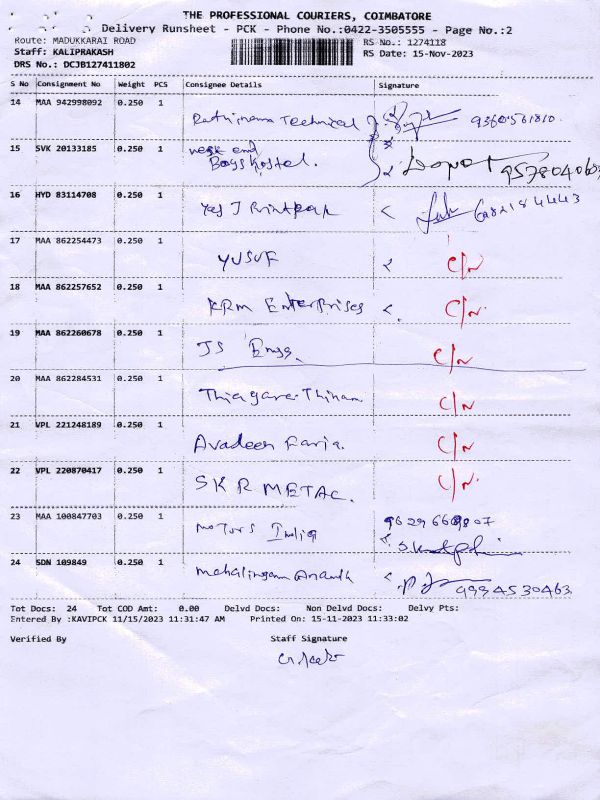 THE PROFESSIONAL COURIERS, COIMBATORE
Delivery Runsheet - PCK - Phone No.:0422-3505555 - Page No.:2
Route: MADUKKARAI ROAD
RS No.: 1274118
Staff: KALIPRAKASH
RS Date: 15-Nov-2023
DRS No.: DCJB127411802
S No Consignment No Weight PCS Consignee Details Signature
14 MAA 942998092 0.250 1 Rathinama Technical 9360561810
15 SVK 20133185 0.250 1 west end
Boys hostel. Depot 9578040603
16 HYD 83114708 0.250 1 Yes J Printpack
17 MAA 862254473 0.250 1 YUSUF C/N
18 MAA 862257652 0.250 1 KRM Enterprises C/N
19 MAA 862260678 0.250 1 JS Engg. C/N
20 MAA 862284531 0.250 1 C/N
21 VPL 221248189 0.250 1 C/N
22 VPL 220870417 0.250 1 SKR METAC. C/N
23 MAA 100847703 0.250 1 Motors India 9629660807
24 SDN 109849 0.250 1 Mahalingam Ananth 9994530463
Tot Docs: 24 Tot COD Amt: 0.00 Delvd Docs: Non Delvd Docs: Delvy Pts:
Entered By :KAVIPCK 11/15/2023 11:31:47 AM Printed On: 15-11-2023 11:33:02
Verified By Staff Signature